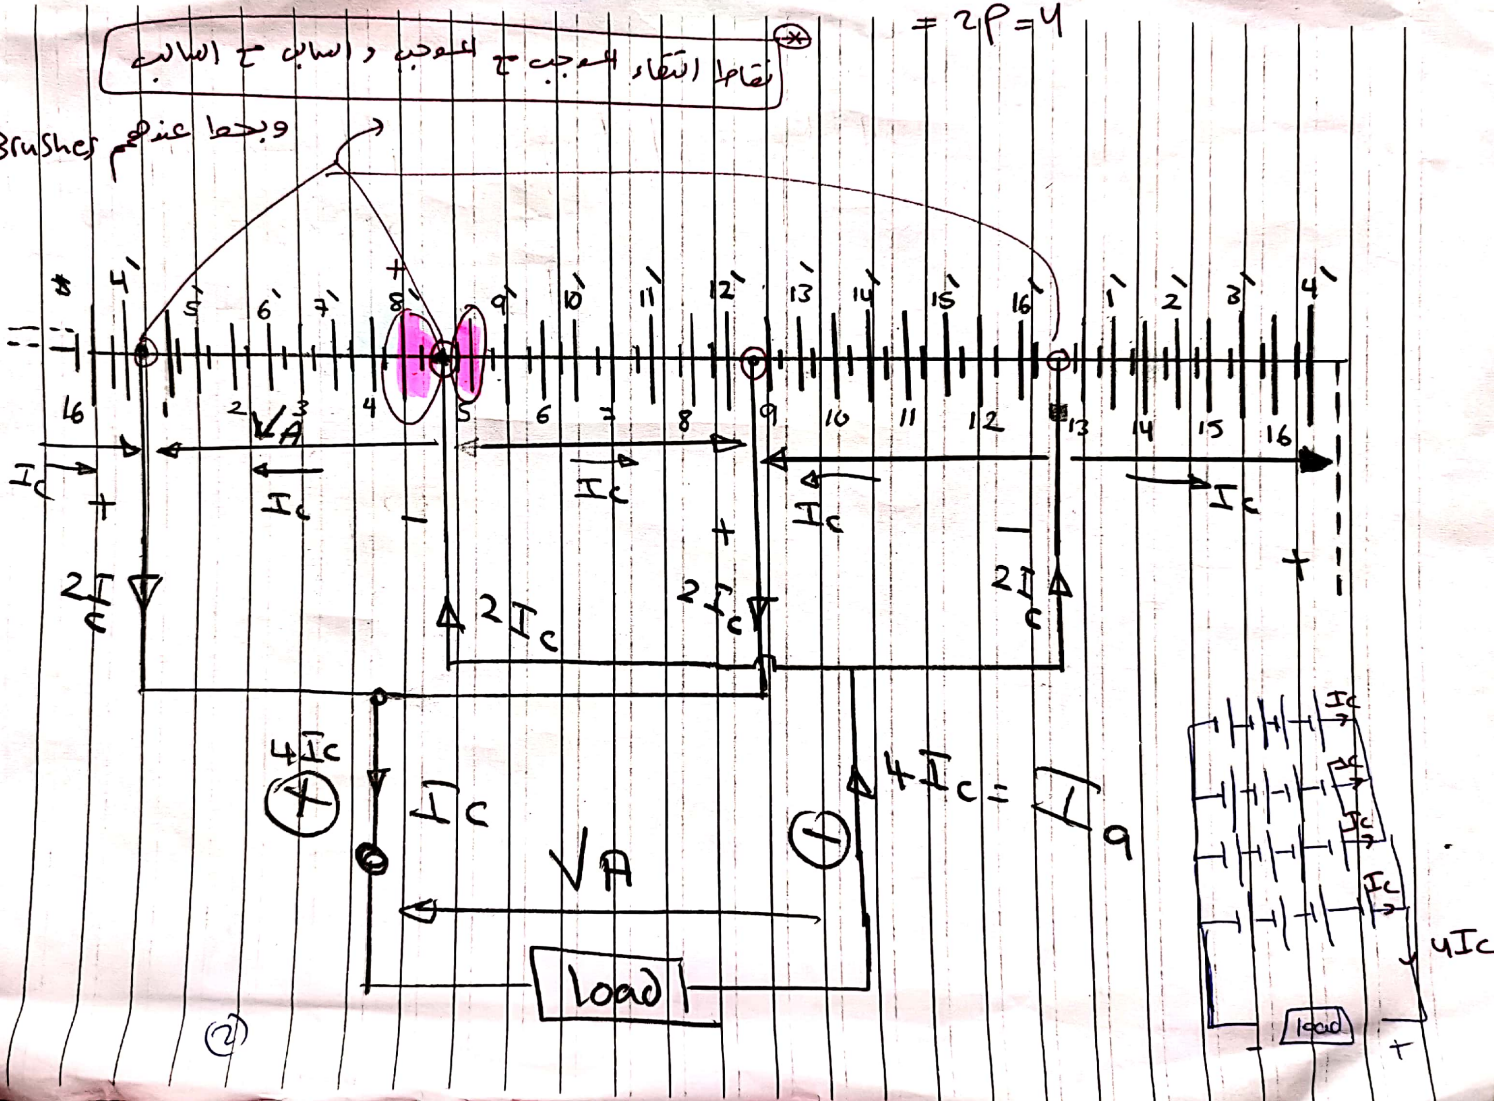 = 2P = 4
*
نقاط التقاء الموجب مع الموجب والسالب مع السالب
وبحط عندهم Brushes
4' 5' 6' 7' 8' 9' 10' 11' 12' 13' 14' 15' 16' 1' 2' 3' 4'
+
16 1 2 3 4 5 6 7 8 9 10 11 12 13 14 15 16
VA
Ic Ic Ic Ic Ic
+ − + − +
2Ic 2Ic 2Ic 2Ic
4Ic
+ Ic − 4Ic = Ia
VA
load
2
Ic
Ic
Ic
Ic
4Ic
load
- +